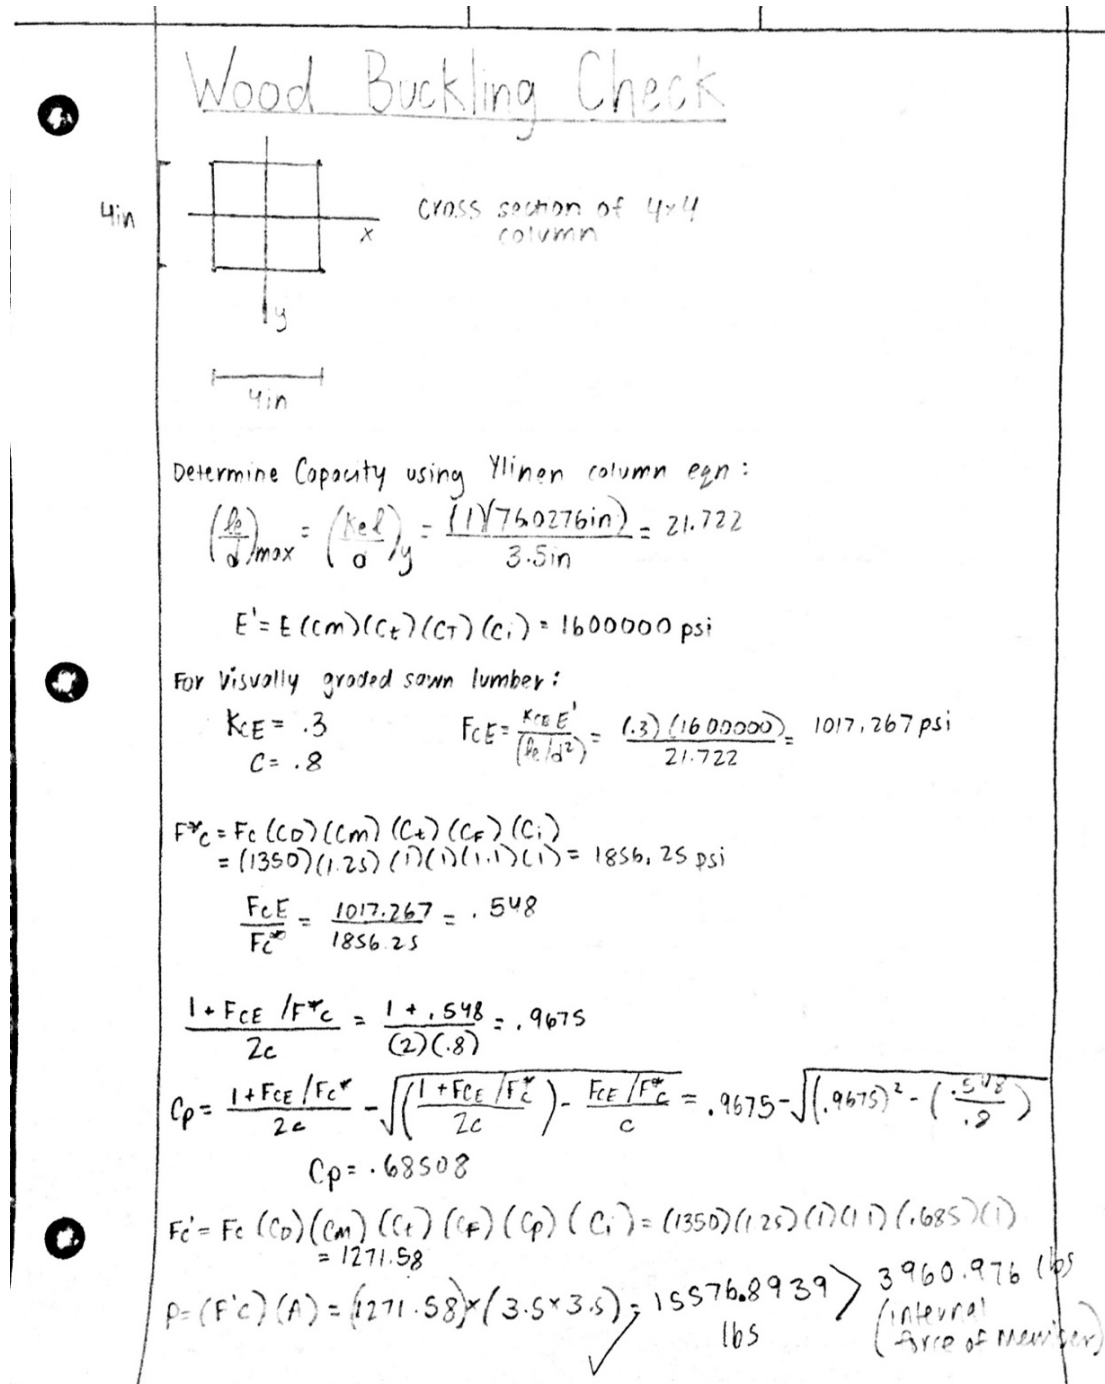 Wood Buckling Check
4in
cross section of 4x4
column
x
y
4in
Determine Capacity using Ylinen column eqn:
(le/d)max = (Kel/d)y = (1)(76.0276in)/3.5in = 21.722
E' = E(Cm)(Ct)(CT)(Ci) = 1600000 psi
For Visually graded sawn lumber:
KCE = .3
C = .8
FCE = KCE E'/(le/d²) = (.3)(1600000)/21.722 = 1017.267 psi
F*c = Fc (CD)(Cm)(Ct)(CF)(Ci)
= (1350)(1.25)(1)(1)(1.1)(1) = 1856.25 psi
FcE/Fc* = 1017.267/1856.25 = .548
1 + FCE /F*c / 2c = 1 + .548 / (2)(.8) = .9675
Cp = 1+FCE/Fc* / 2c - √((1+FCE/F*c / 2c) - FCE/F*c / c) = .9675 - √((.9675)² - (.548/.8))
Cp = .68508
Fc' = Fc (CD)(Cm)(Ct)(CF)(Cp)(Ci) = (1350)(1.25)(1)(1.1)(.685)(1)
= 1271.58
P = (F'c)(A) = (1271.58)×(3.5×3.5) = 15576.8939 > 3960.976 lbs
lbs
(internal
force of member)